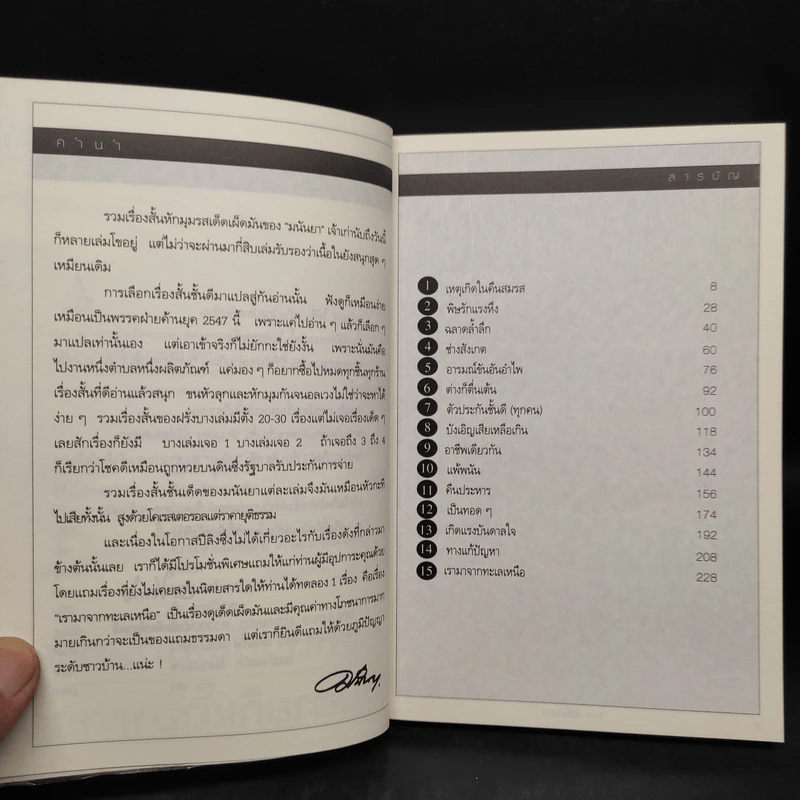 คำนำ
รวมเรื่องสั้นหักมุมรสเด็ดเผ็ดมันของ "มนันยา" เจ้าเก่านับถึงวันนี้
ก็หลายเล่มโขอยู่ แต่ไม่ว่าจะผ่านมากี่สิบเล่มรับรองว่าเนื้อในยังสนุกสุด ๆ
เหมือนเดิม
การเลือกเรื่องสั้นชั้นดีมาแปลสู่กันอ่านนั้น ฟังดูก็เหมือนง่าย
เหมือนเป็นพรรคฝ่ายค้านยุค 2547 นี้ เพราะแค่ไปอ่าน ๆ แล้วก็เลือก ๆ
มาแปลเท่านั้นเอง แต่เอาเข้าจริงก็ไม่ยักกะใช่ยังงั้น เพราะนั่นมันคือ
ไปงานหนึ่งตำบลหนึ่งผลิตภัณฑ์ แค่มอง ๆ ก็อยากซื้อไปหมดทุกชิ้นทุกร้าน
เรื่องสั้นที่ดีอ่านแล้วสนุก ขนหัวลุกและหักมุมกันจนอลเวงไม่ใช่ว่าจะหาได้
ง่าย ๆ รวมเรื่องสั้นของฝรั่งบางเล่มมีตั้ง 20-30 เรื่องแต่ไม่เจอเรื่องเด็ด ๆ
เลยสักเรื่องก็ยังมี บางเล่มเจอ 1 บางเล่มเจอ 2 ถ้าเจอถึง 3 ถึง 4
ก็เรียกว่าโชคดีเหมือนถูกหวยบนดินซึ่งรัฐบาลรับประกันการจ่าย
รวมเรื่องสั้นชั้นเด็ดของมนันยาแต่ละเล่มจึงมันเหมือนหัวกะทิ
ไปเสียทั้งนั้น สูงด้วยโคเรสเตอรอลแต่ราคายุติธรรม
และเนื่องในโอกาสปีลิงซึ่งไม่ได้เกี่ยวอะไรกับเรื่องดังที่กล่าวมา
ข้างต้นนั้นเลย เราก็ได้มีโปรโมชั่นพิเศษแถมให้แก่ท่านผู้มีอุปการะคุณด้วย
โดยแถมเรื่องที่ยังไม่เคยลงในนิตยสารใดให้ท่านได้ทดลอง 1 เรื่อง คือเรื่อง
"เรามาจากทะเลเหนือ" เป็นเรื่องดุเด็ดเผ็ดมันและมีคุณค่าทางโภชนาการมาก
มายเกินกว่าจะเป็นของแถมธรรมดา แต่เราก็ยินดีแถมให้ด้วยภูมิปัญญา
ระดับชาวบ้าน...แน่ะ !
สารบัญ
1 เหตุเกิดในคืนสมรส 8
2 พิษรักแรงหึง 28
3 ฉลาดล้ำลึก 40
4 ช่างสังเกต 60
5 อารมณ์ขันอันอำไพ 76
6 ต่างก็ตื่นเต้น 92
7 ตัวประกันชั้นดี (ทุกคน) 100
8 บังเอิญเสียเหลือเกิน 118
9 อาชีพเดียวกัน 134
10 แพ้พนัน 144
11 คืนประหาร 156
12 เป็นทอด ๆ 174
13 เกิดแรงบันดาลใจ 192
14 ทางแก้ปัญหา 208
15 เรามาจากทะเลเหนือ 228